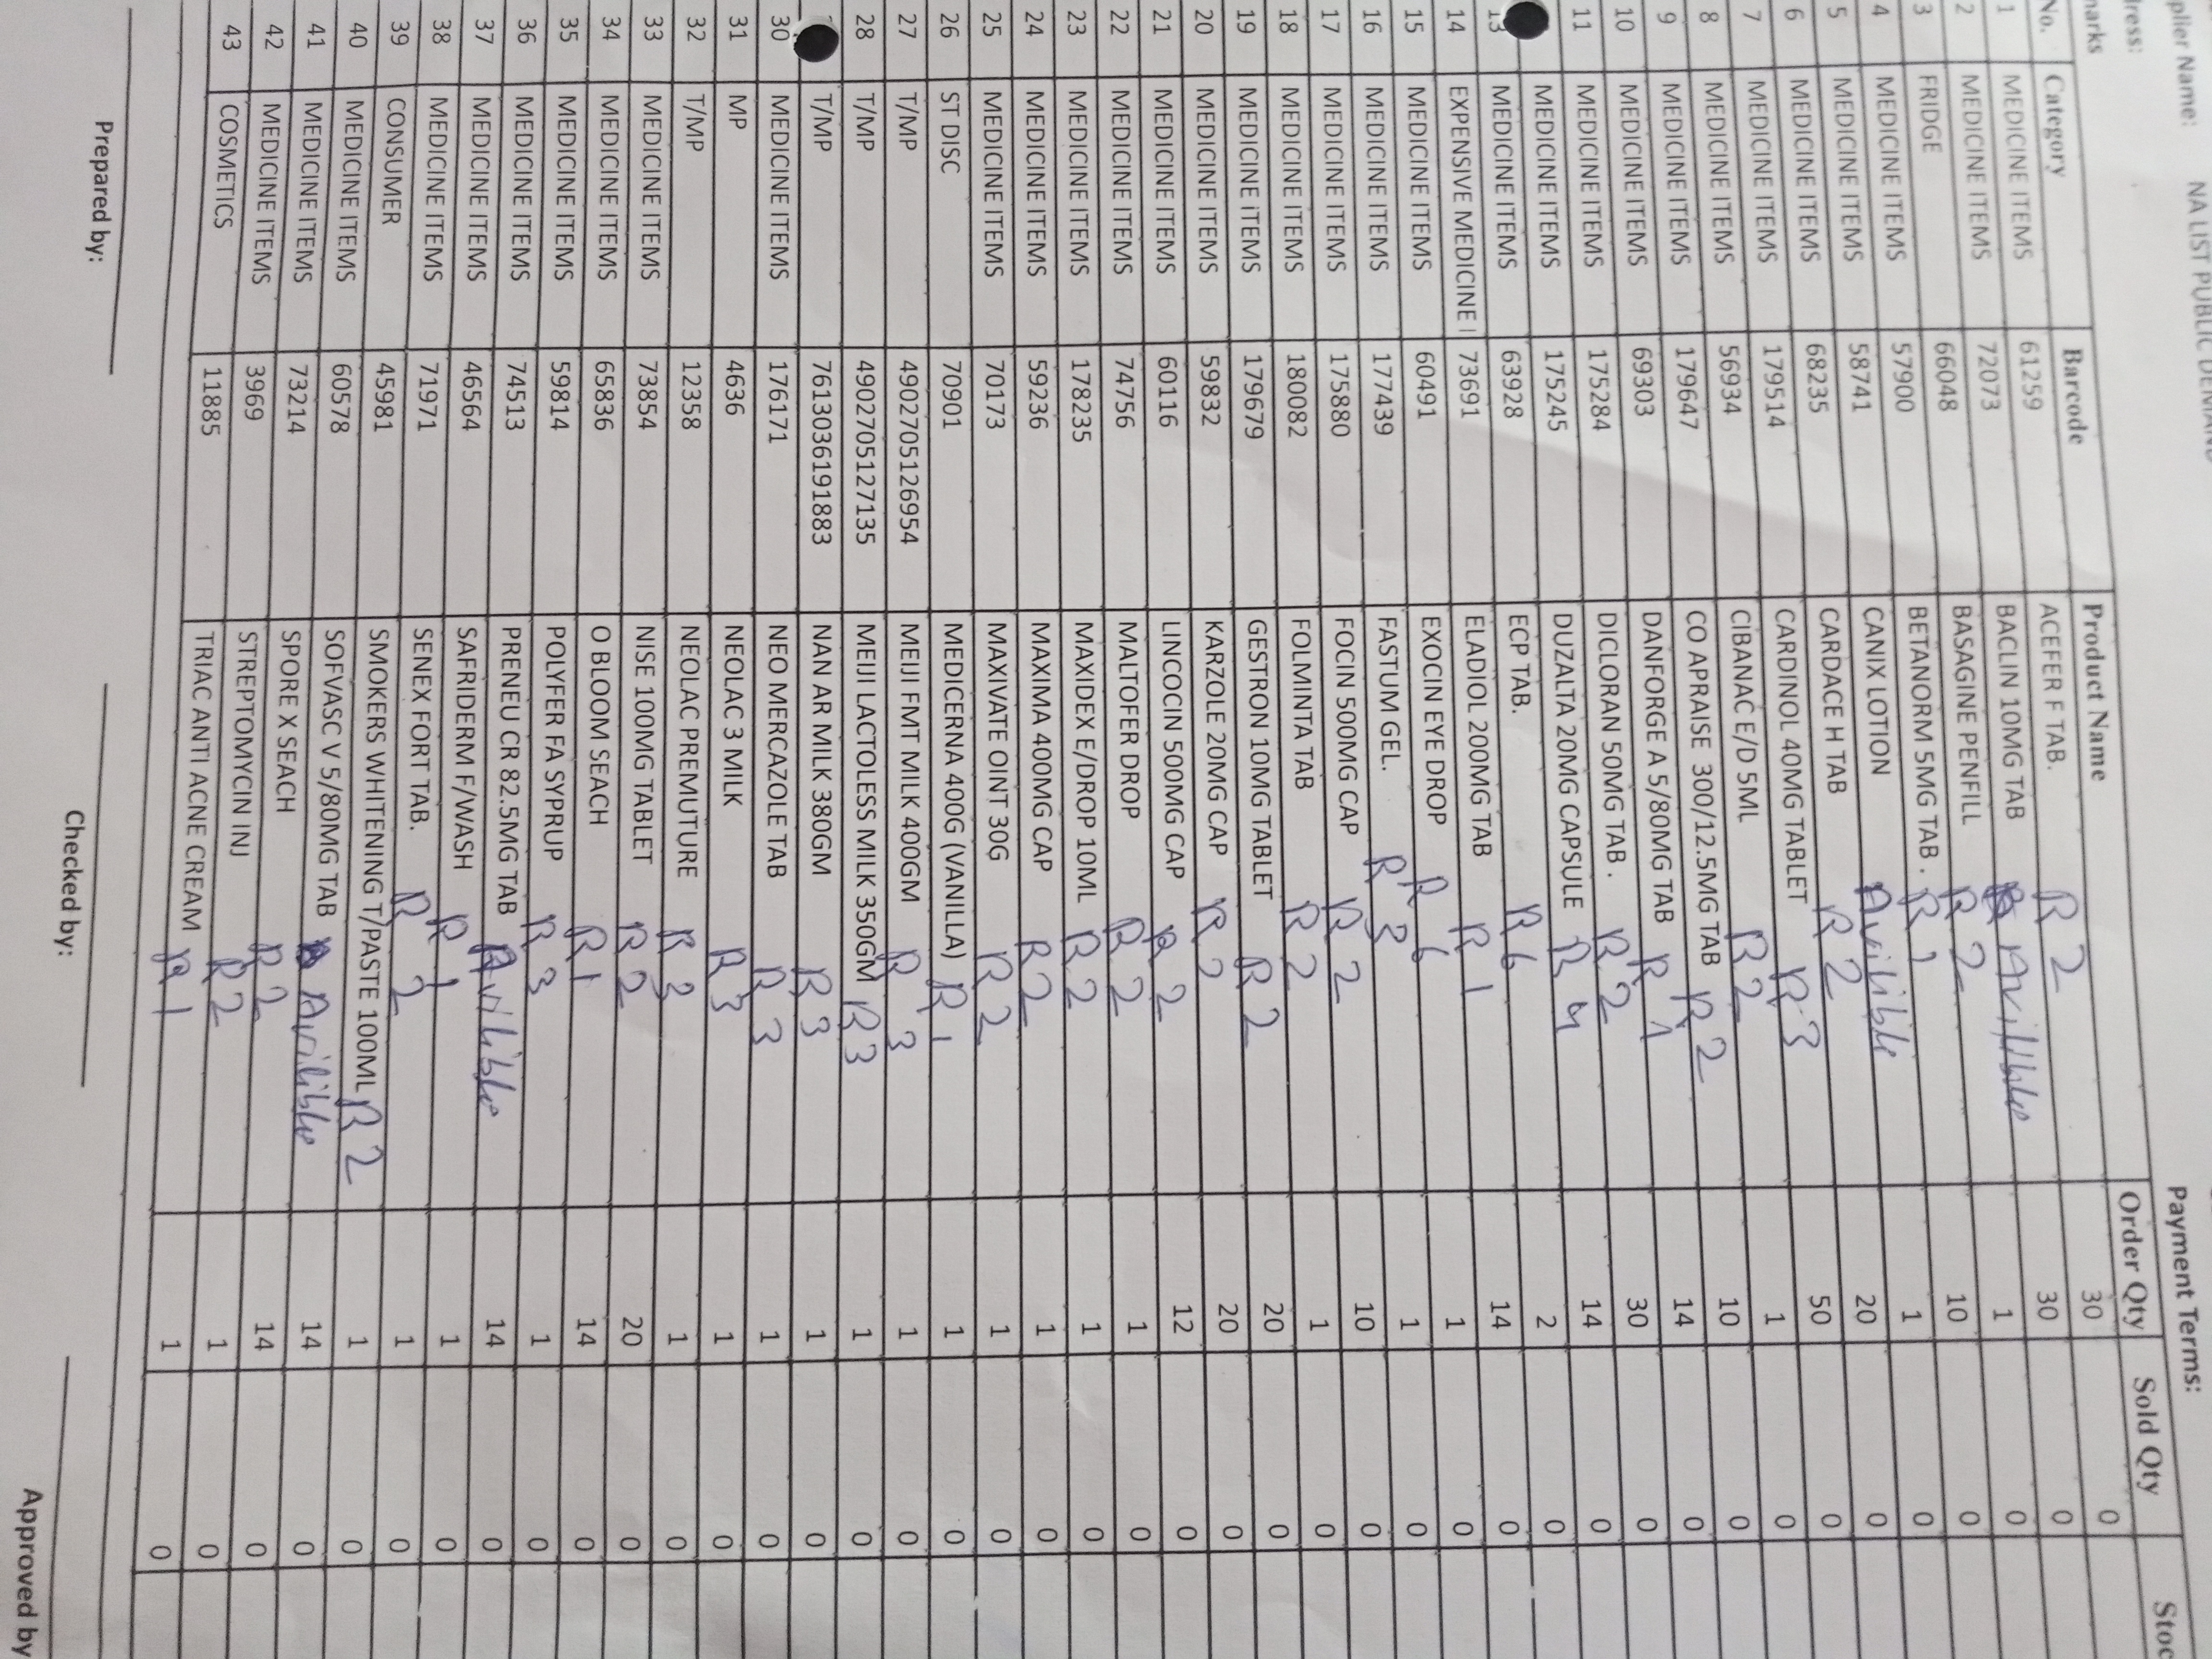 plier Name: NA LIST PUBLIC DEMAND
dress: Payment Terms:
marks
No. Category Barcode Product Name Order Qty Sold Qty Stoc
1 MEDICINE ITEMS 61259 ACEFER F TAB. R 2 30 0
2 MEDICINE ITEMS 72073 BACLIN 10MG TAB Avilible 30 0
3 FRIDGE 66048 BASAGINE PENFILL R 2 1 0
4 MEDICINE ITEMS 57900 BETANORM 5MG TAB . R 1 10 0
5 MEDICINE ITEMS 58741 CANIX LOTION Avilible 1 0
6 MEDICINE ITEMS 68235 CARDACE H TAB R 2 20 0
7 MEDICINE ITEMS 179514 CARDINOL 40MG TABLET R 3 50 0
8 MEDICINE ITEMS 56934 CIBANAC E/D 5ML R 2 1 0
9 MEDICINE ITEMS 179647 CO APRAISE 300/12.5MG TAB R 2 10 0
10 MEDICINE ITEMS 69303 DANFORGE A 5/80MG TAB R 1 14 0
11 MEDICINE ITEMS 175284 DICLORAN 50MG TAB . R 2 30 0
MEDICINE ITEMS 175245 DUZALTA 20MG CAPSULE R 4 14 0
13 MEDICINE ITEMS 63928 ECP TAB. R 6 2 0
14 EXPENSIVE MEDICINE I 73691 ELADIOL 200MG TAB R 1 14 0
15 MEDICINE ITEMS 60491 EXOCIN EYE DROP R 6 1 0
16 MEDICINE ITEMS 177439 FASTUM GEL. R 3 1 0
17 MEDICINE ITEMS 175880 FOCIN 500MG CAP R 2 10 0
18 MEDICINE ITEMS 180082 FOLMINTA TAB R 2 1 0
19 MEDICINE ITEMS 179679 GESTRON 10MG TABLET R 2 20 0
20 MEDICINE ITEMS 59832 KARZOLE 20MG CAP R 2 20 0
21 MEDICINE ITEMS 60116 LINCOCIN 500MG CAP R 2 12 0
22 MEDICINE ITEMS 74756 MALTOFER DROP R 2 1 0
23 MEDICINE ITEMS 178235 MAXIDEX E/DROP 10ML R 2 1 0
24 MEDICINE ITEMS 59236 MAXIMA 400MG CAP R 2 1 0
25 MEDICINE ITEMS 70173 MAXIVATE OINT 30G R 2 1 0
26 ST DISC 70901 MEDICERNA 400G (VANILLA) R 1 1 0
27 T/MP 4902705126954 MEIJI FMT MILK 400GM R 3 1 0
28 T/MP 4902705127135 MEIJI LACTOLESS MILK 350GM R 3 1 0
T/MP 7613036191883 NAN AR MILK 380GM R 3 1 0
30 MEDICINE ITEMS 176171 NEO MERCAZOLE TAB R 3 1 0
31 MP 4636 NEOLAC 3 MILK R 3 1 0
32 T/MP 12358 NEOLAC PREMUTURE R 3 1 0
33 MEDICINE ITEMS 73854 NISE 100MG TABLET R 2 20 0
34 MEDICINE ITEMS 65836 O BLOOM SEACH R 1 14 0
35 MEDICINE ITEMS 59814 POLYFER FA SYPRUP R 3 1 0
36 MEDICINE ITEMS 74513 PRENEU CR 82.5MG TAB Avilible 14 0
37 MEDICINE ITEMS 46564 SAFRIDERM F/WASH R 1 1 0
38 MEDICINE ITEMS 71971 SENEX FORT TAB. R 2 1 0
39 CONSUMER 45981 SMOKERS WHITENING T/PASTE 100ML R 2 1 0
40 MEDICINE ITEMS 60578 SOFVASC V 5/80MG TAB Avilible 14 0
41 MEDICINE ITEMS 73214 SPORE X SEACH R 2 14 0
42 MEDICINE ITEMS 3969 STREPTOMYCIN INJ R 2 1 0
43 COSMETICS 11885 TRIAC ANTI ACNE CREAM R 1 1 0
Prepared by: Checked by: Approved by